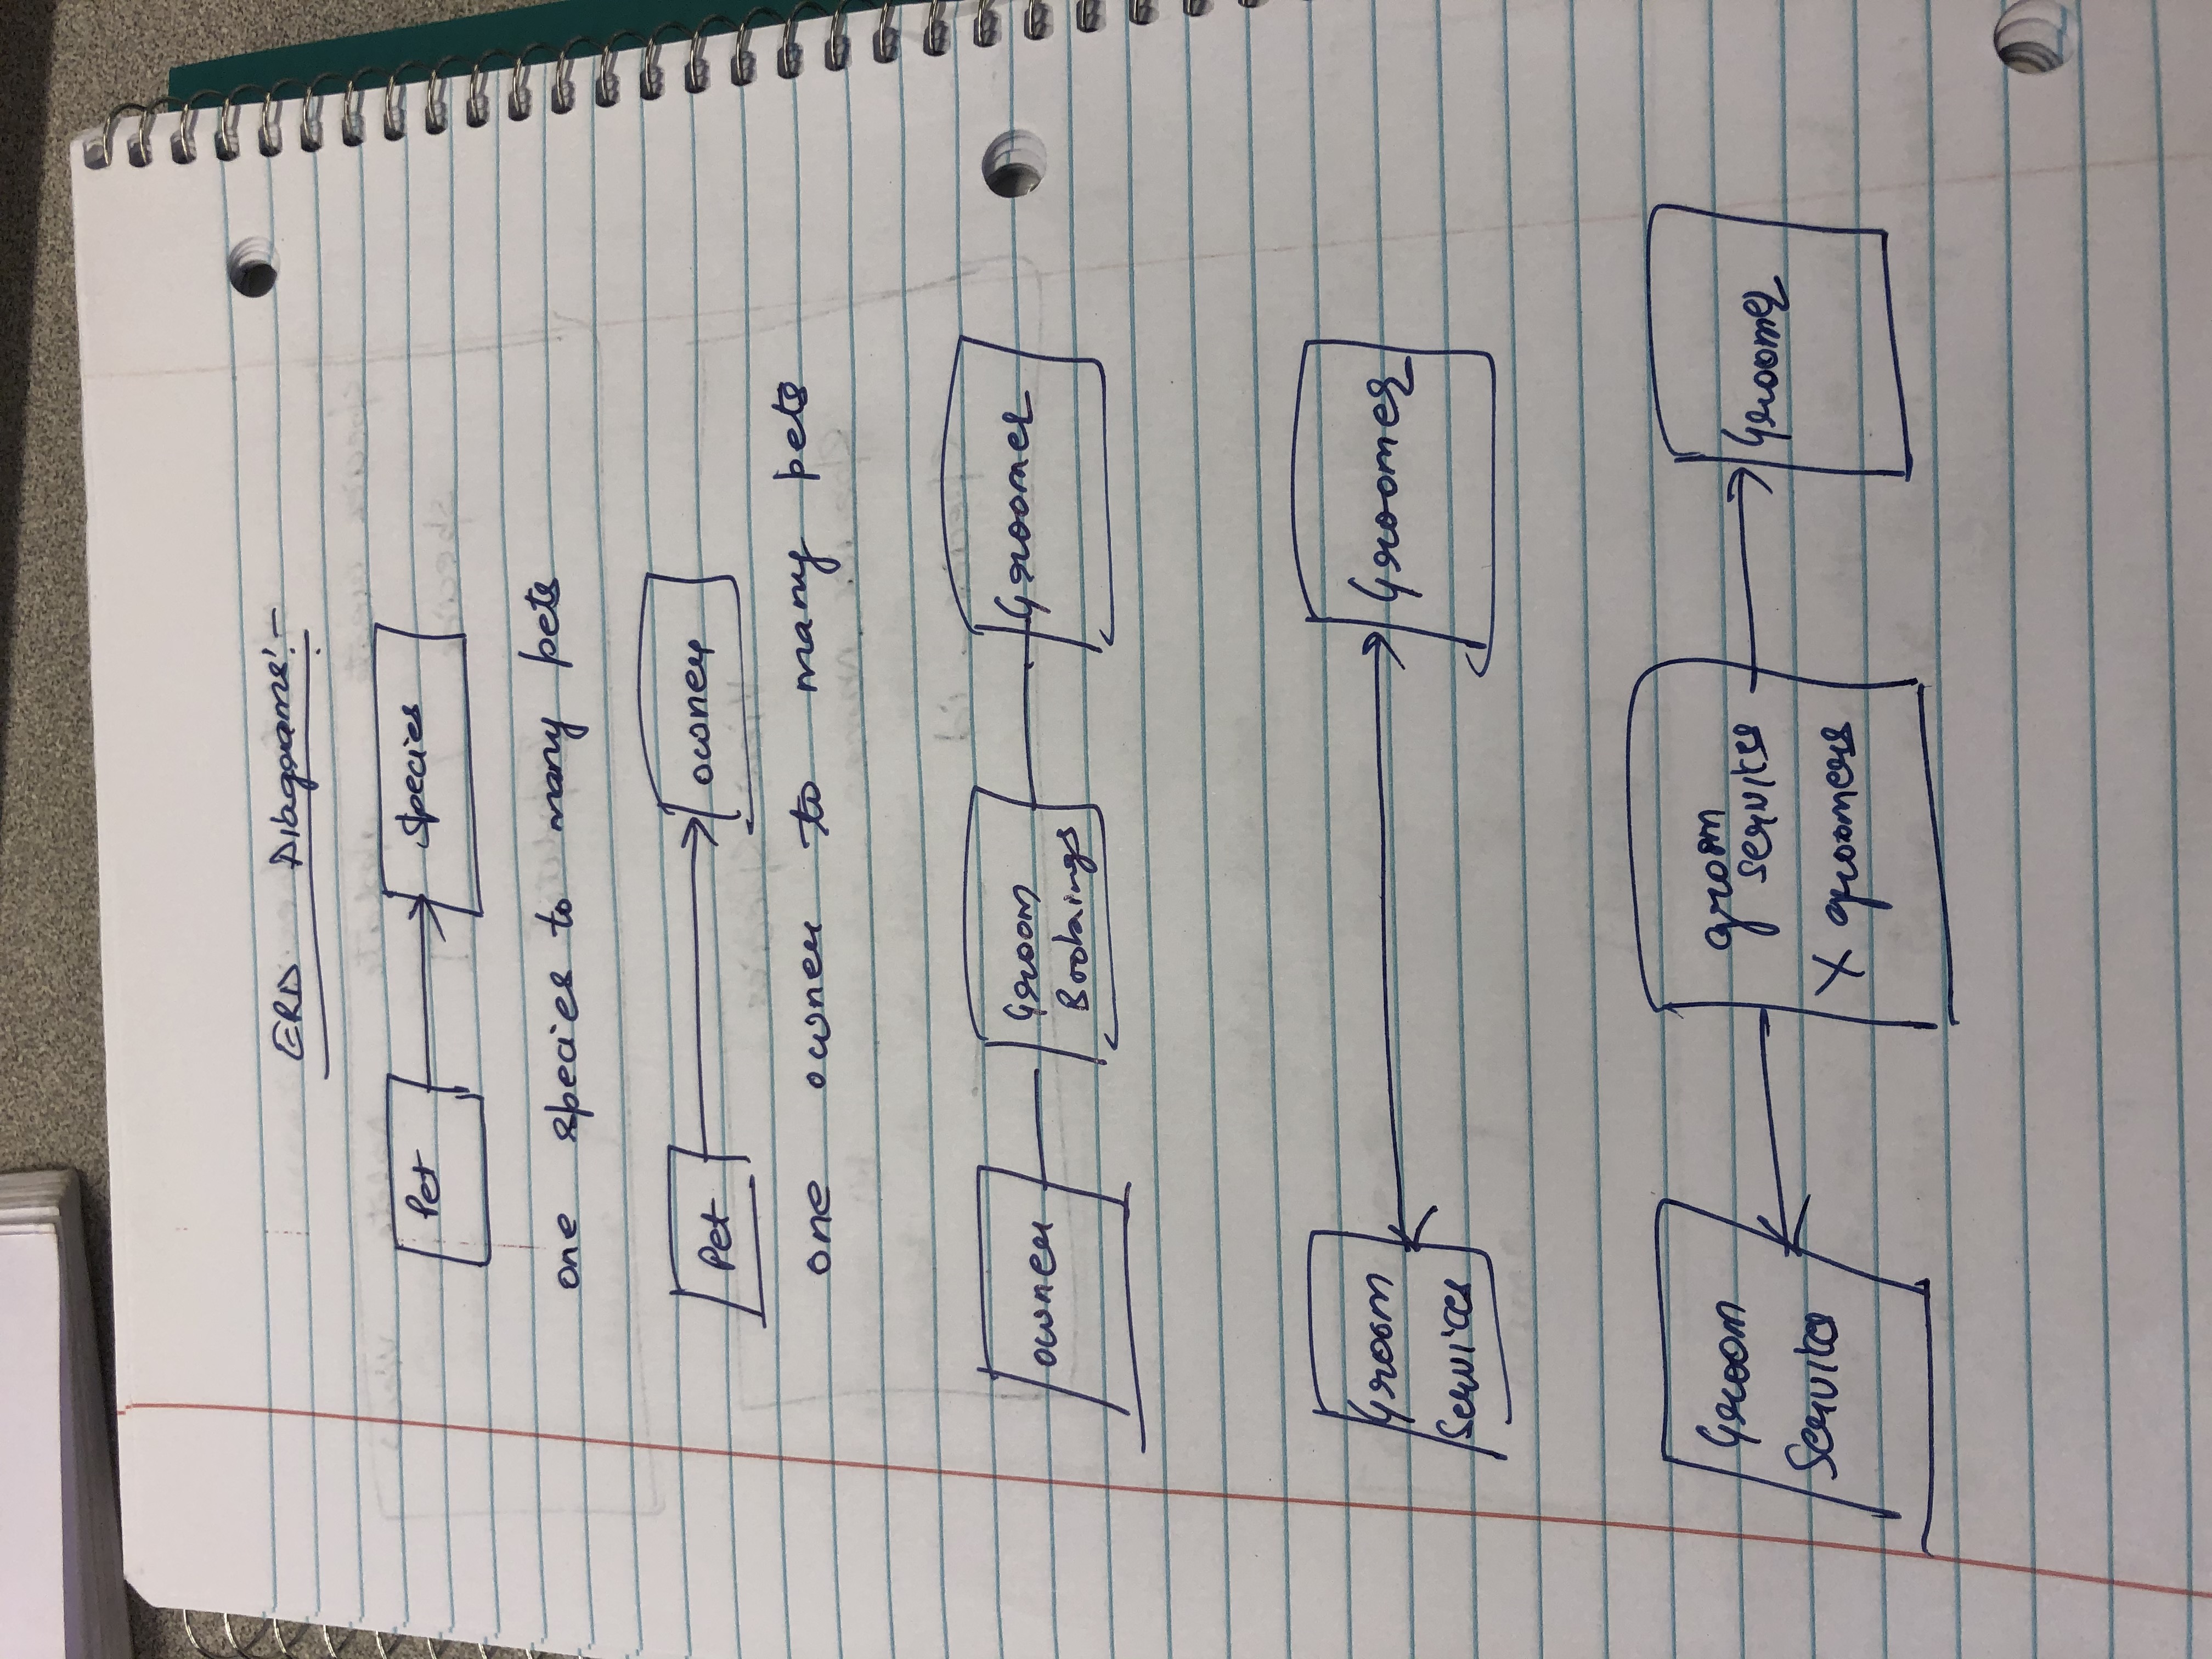 ERD Diagrams:-
Pet Species
one species to many pets
Pet owner
one owner to many pets
owner Groom Groomer
Bookings
Groom Groomer
Services
Groom groom Groomer
Services services
X groomers